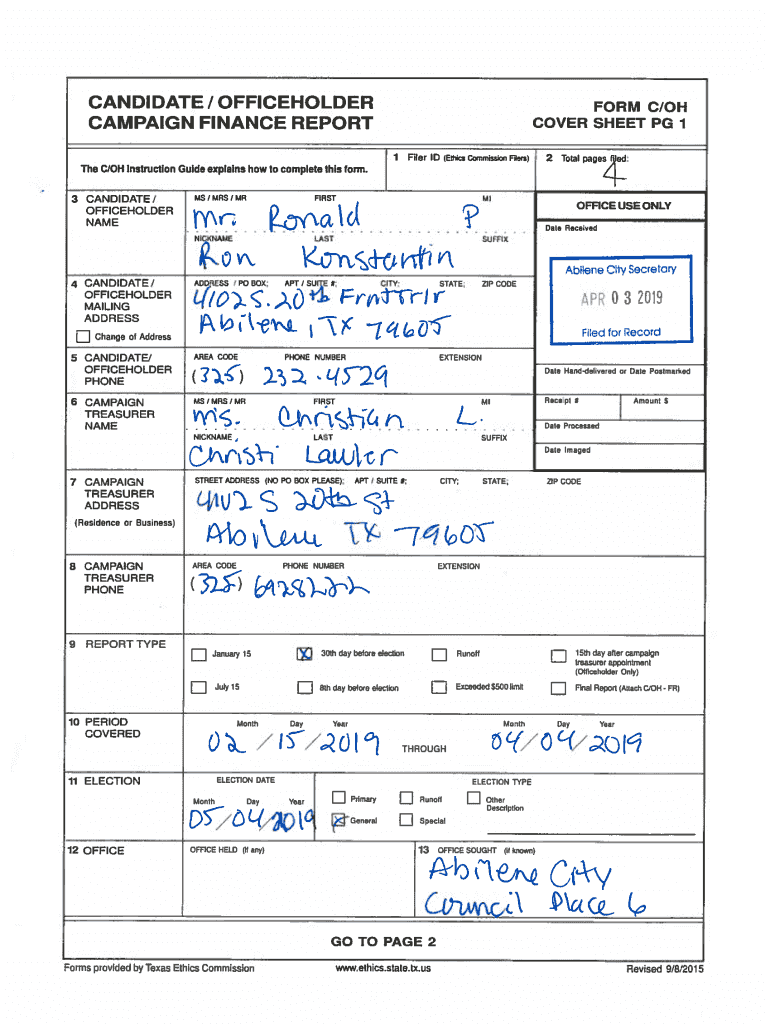 CANDIDATE / OFFICEHOLDER
CAMPAIGN FINANCE REPORT
FORM C/OH
COVER SHEET PG 1
The C/OH Instruction Guide explains how to complete this form.
1 Filer ID (Ethics Commission Filers)
2 Total pages filed:
4
3 CANDIDATE / OFFICEHOLDER NAME
MS / MRS / MR FIRST MI
Mr. Ronald P
NICKNAME LAST SUFFIX
Ron Konstantin
OFFICE USE ONLY
Date Received
Abilene City Secretary
APR 03 2019
Filed for Record
4 CANDIDATE / OFFICEHOLDER MAILING ADDRESS
Change of Address
ADDRESS / PO BOX; APT / SUITE #; CITY; STATE; ZIP CODE
4102 S. 20th
Abilene, TX 79605
5 CANDIDATE/ OFFICEHOLDER PHONE
AREA CODE PHONE NUMBER EXTENSION
(325) 232-4529
Date Hand-delivered or Date Postmarked
6 CAMPAIGN TREASURER NAME
MS / MRS / MR FIRST MI
Ms. Christian L.
NICKNAME LAST SUFFIX
Christi Lawler
Receipt # Amount $
Date Processed
Date Imaged
7 CAMPAIGN TREASURER ADDRESS
(Residence or Business)
STREET ADDRESS (NO PO BOX PLEASE); APT / SUITE #; CITY; STATE; ZIP CODE
4102 S 20th St
Abilene TX 79605
8 CAMPAIGN TREASURER PHONE
AREA CODE PHONE NUMBER EXTENSION
(325) 6928222
9 REPORT TYPE
January 15 X 30th day before election Runoff 15th day after campaign treasurer appointment (Officeholder Only)
July 15 8th day before election Exceeded $500 limit Final Report (Attach C/OH - FR)
10 PERIOD COVERED
Month Day Year Month Day Year
02 / 15 / 2019 THROUGH 04 / 04 / 2019
11 ELECTION
ELECTION DATE ELECTION TYPE
Month Day Year Primary Runoff Other Description
05/04/2019 X General Special
12 OFFICE
OFFICE HELD (if any)
13 OFFICE SOUGHT (if known)
Abilene City
Council Place 6
GO TO PAGE 2
Forms provided by Texas Ethics Commission www.ethics.state.tx.us Revised 9/8/2015